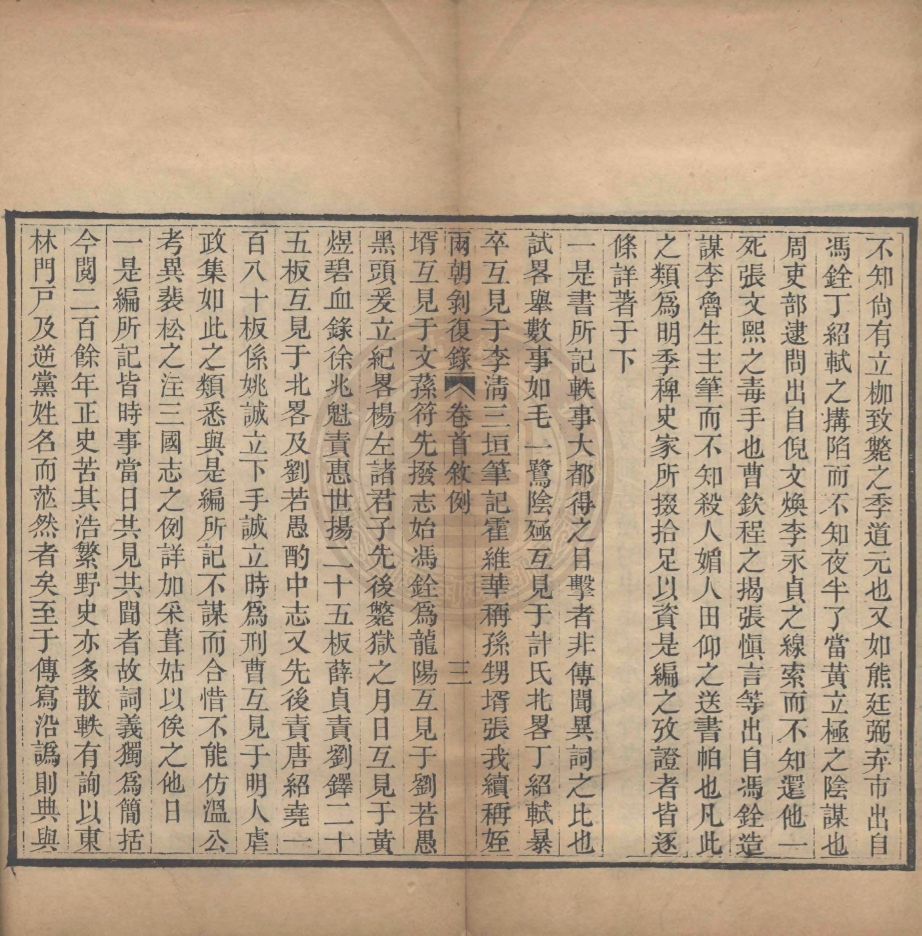 不知尙有立枷致斃之季道元也又如熊廷弼弃市出自
馮銓丁紹軾之搆陷而不知夜半了當黃立極之陰謀也
周吏部逮問出自倪文煥李永貞之線索而不知還他一
死張文熙之毒手也曹欽程之揭張愼言等出自馮銓造
謀李魯生主筆而不知殺人媚人田仰之送書帕也凡此
之類爲明季稗史家所掇拾足以資是編之攷證者皆逐
條詳著于下
一是書所記軼事大都得之目擊者非傳聞異詞之比也
試畧舉數事如毛一鷺陰殛互見于計氏北畧丁紹軾暴
卒互見于李淸三垣筆記霍維華稱孫甥壻張我續稱姪
兩朝剝復錄 卷首敘例 三
壻互見于文蓀符先撥志始馮銓爲龍陽互見于劉若愚
黑頭爰立紀畧楊左諸君子先後斃獄之月日互見于黃
煜碧血錄徐兆魁責惠世揚二十五板薛貞責劉鐸二十
五板互見于北畧及劉若愚酌中志又先後責唐紹堯一
百八十板係姚誠立下手誠立時爲刑曹互見于明人虐
政集如此之類悉與是編所記不謀而合惜不能仿溫公
考異裴松之注三國志之例詳加采葺姑以俟之他日
一是編所記皆時事當日共見共聞者故詞義獨爲簡括
今閱二百餘年正史苦其浩繁野史亦多散軼有詢以東
林門戸及逆黨姓名而茫然者矣至于傳寫沿譌則典與